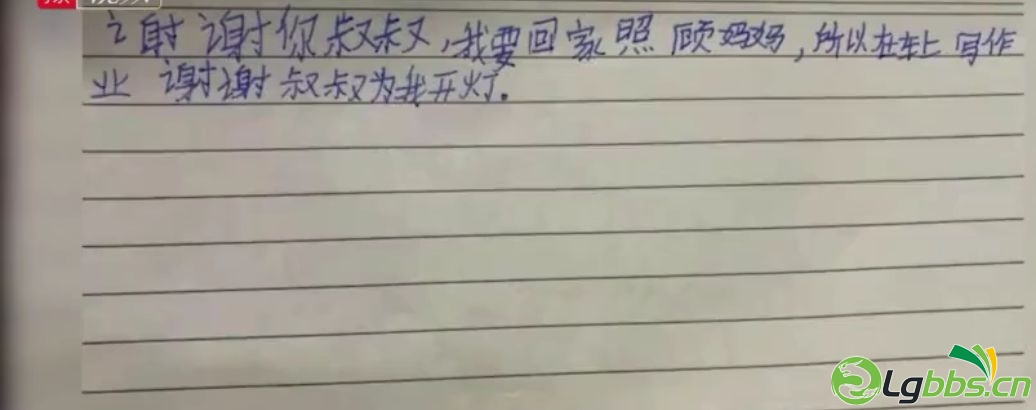 谢谢你叔叔,我要回家照顾妈妈,所以在车上写作
业 谢谢叔叔为我开灯.
Lgbbs.cn